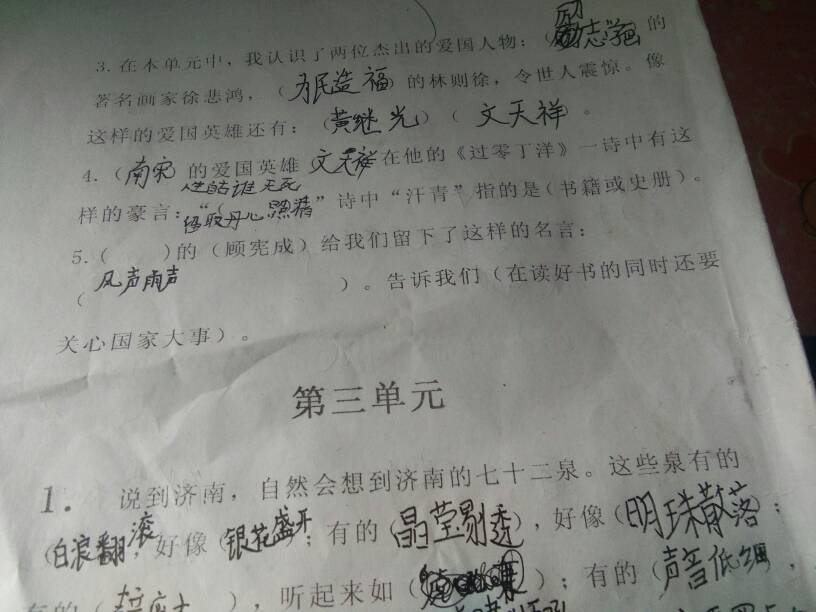 3. 在本单元中，我认识了两位杰出的爱国人物：（励志学画）的
著名画家徐悲鸿，（为民造福）的林则徐，令世人震惊。像
这样的爱国英雄还有：（黄继光）（文天祥）。
4.（南宋的爱国英雄文天祥在他的《过零丁洋》一诗中有这
人生自古谁无死
样的豪言：“（留取丹心照汗青”诗中“汗青”指的是（书籍或史册）。
5.（ ）的（顾宪成）给我们留下了这样的名言：
（风声雨声 ）。告诉我们（在读好书的同时还要
关心国家大事）。
第三单元
1. 说到济南，自然会想到济南的七十二泉。这些泉有的
（白浪翻滚，好像（银花盛开）；有的（晶莹剔透），好像（明珠散落；
有的（ ），听起来如（ ）；有的（声音低细，